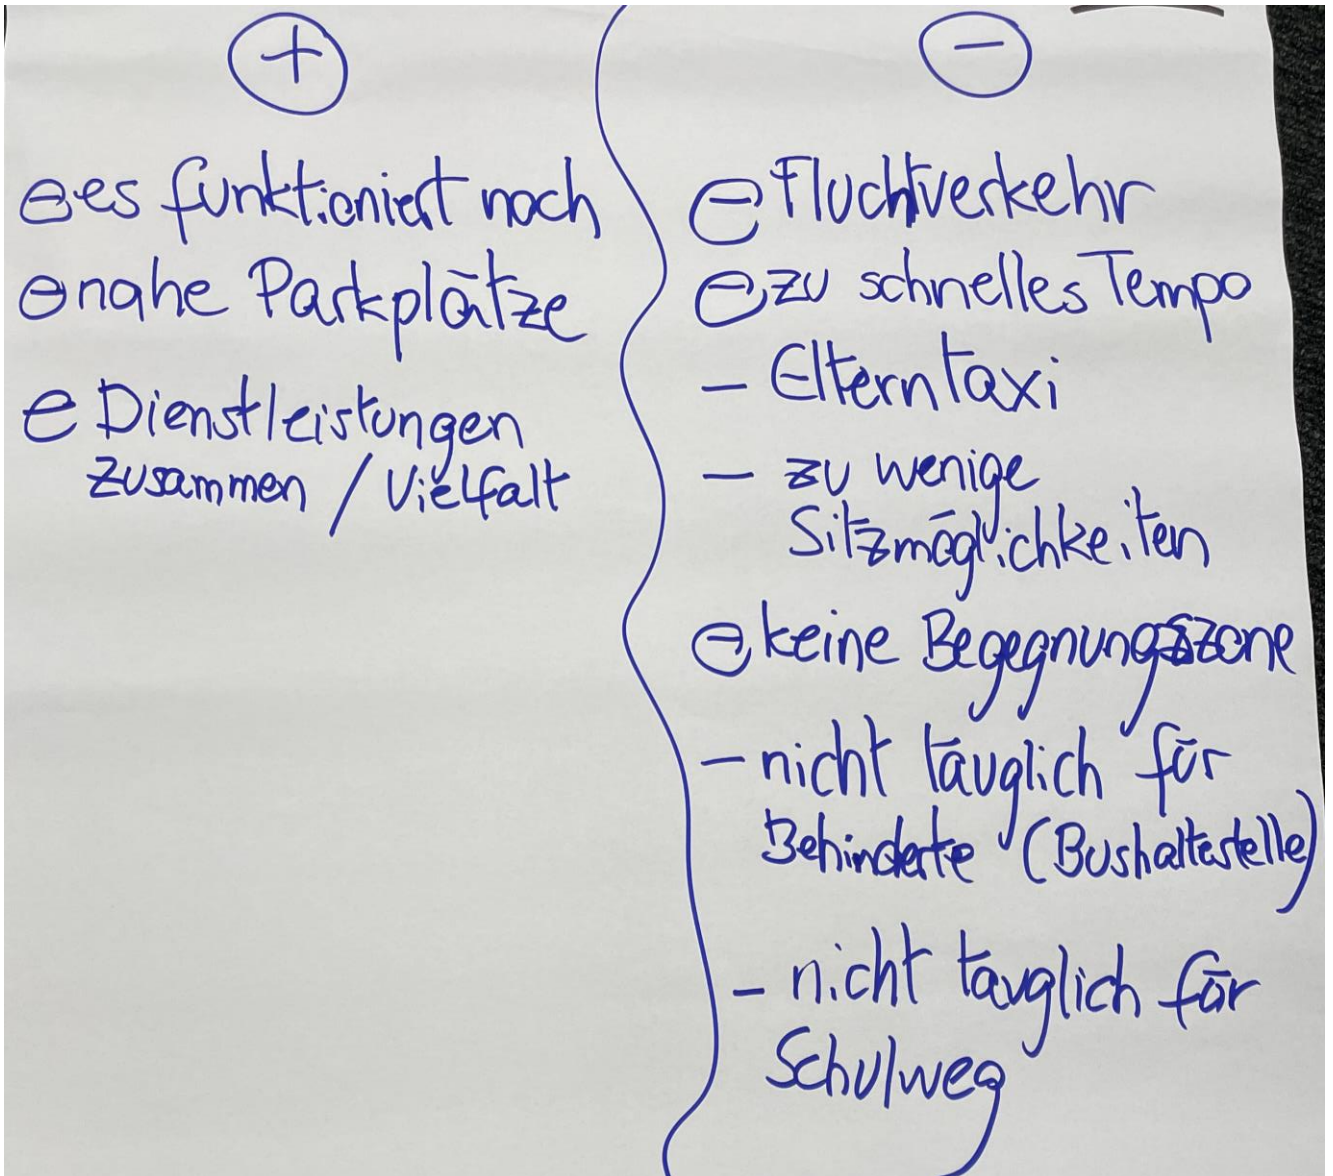 +
⊖ es funktioniert noch
⊖ nahe Parkplätze
⊖ Dienstleistungen
zusammen / Vielfalt
−
⊖ Fluchtverkehr
⊖ zu schnelles Tempo
- Elterntaxi
- zu wenige
Sitzmöglichkeiten
⊖ keine Begegnungszone
- nicht tauglich für
Behinderte (Bushaltestelle)
- nicht tauglich für
Schulweg